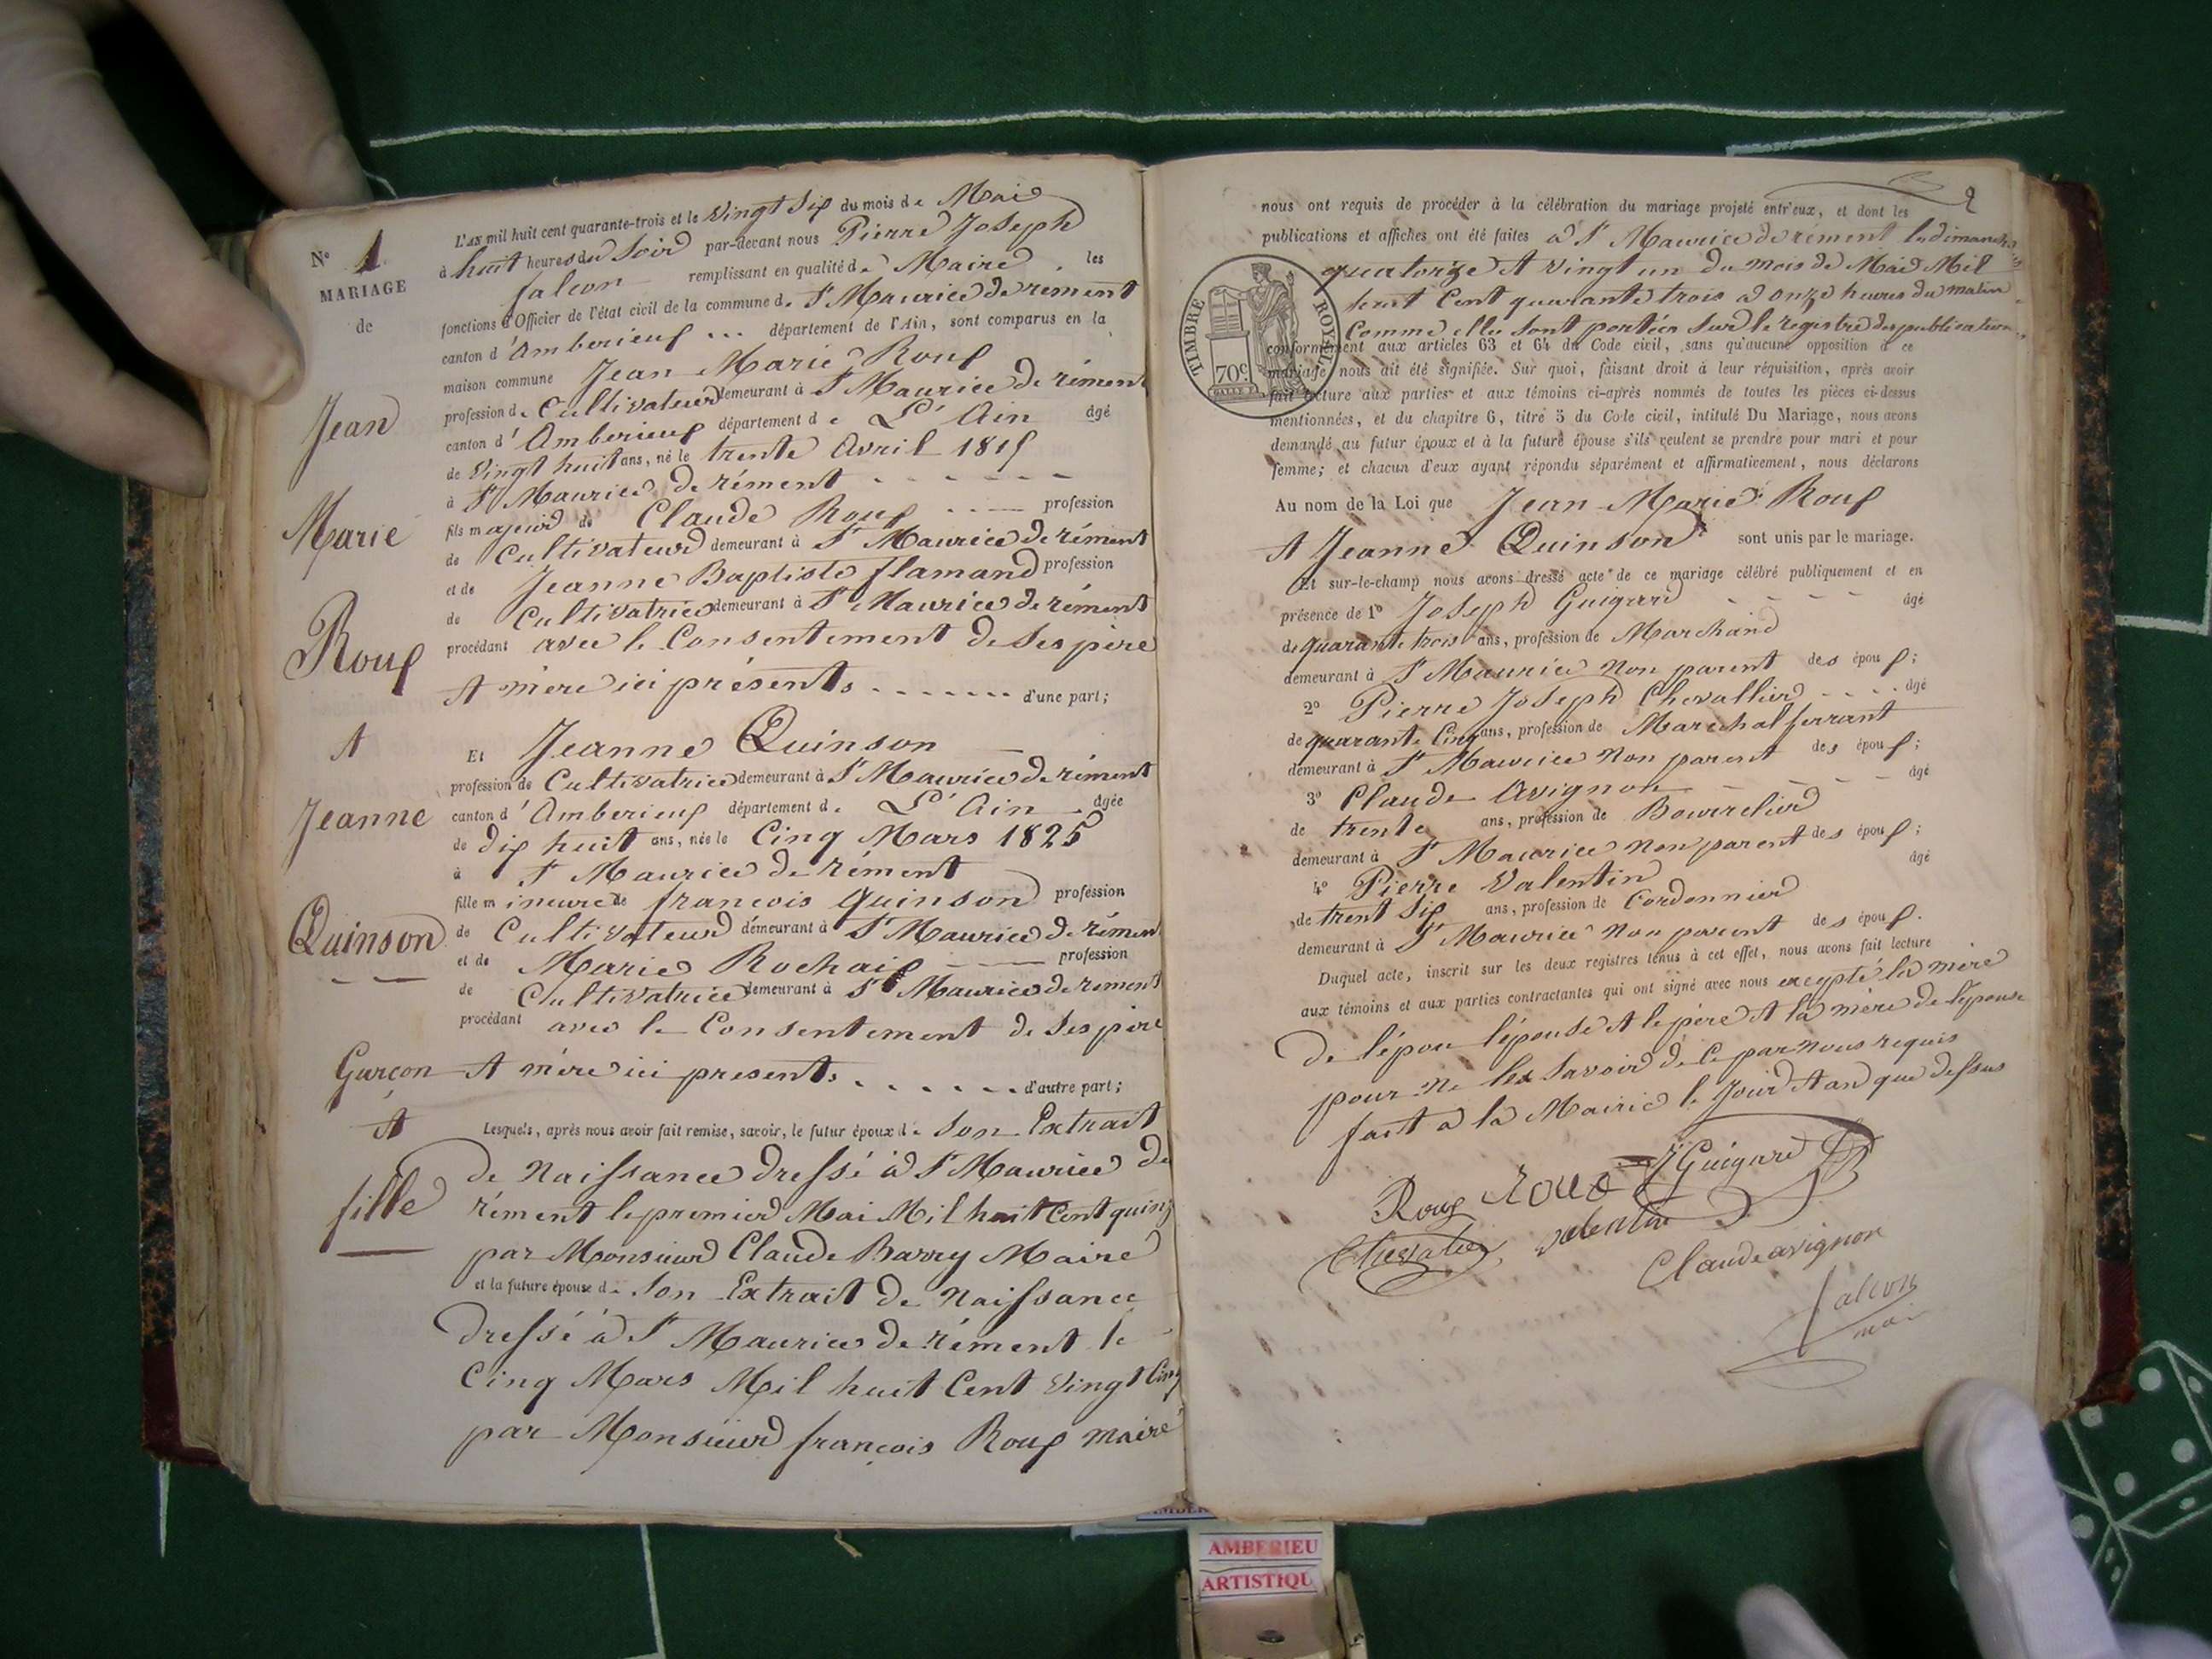 N° 1
MARIAGE
de
Jean
Marie
Roux
Et
Jeanne
Quinson
Garçon
Et
fille
L'an mil huit cent quarante-trois et le Vingt Six du mois de Mai
à huit heures du Soir par-devant nous Pierre Joseph
falcon remplissant en qualité de Maire les
fonctions d'Officier de l'état civil de la commune de St Maurice de rément
canton d'Amberieux ... département de l'Ain, sont comparus en la
maison commune Jean Marie Roux
profession de Cultivateur demeurant à St Maurice de rément
canton d'Amberieux département de L'Ain âgé
de Vingt huit ans, né le trente Avril 1815
à St Maurice de rément
fils majeur de Claude Roux profession
de Cultivateur demeurant à St Maurice de rément
et de Jeanne Baptiste flamand profession
de Cultivatrice demeurant à St Maurice de rément
procédant avec le Consentement de Ses père
Et mère ici présents d'une part;
Et Jeanne Quinson
profession de Cultivatrice demeurant à St Maurice de rément
canton d'Amberieux département de L'Ain âgée
de dix huit ans, née le Cinq Mars 1825
à St Maurice de rément
fille mineure de francois quinson profession
de Cultivateur demeurant à St Maurice de rément
et de Marie Rochaix profession
de Cultivatrice demeurant à St Maurice de rément
procédant avec le Consentement de Ses père
Et mère ici presents d'autre part;
Lesquels, après nous avoir fait remise, savoir, le futur époux de Son Extrait
de Naissance dressé à St Maurice de
rément le premier Mai Mil huit Cent quinz
par Monsieur Claude Barry Maire
et la future épouse de Son Extrait de Naissance
dressé à St Maurice de rément le
Cinq Mars Mil huit Cent Vingt Cinq
par Monsieur françois Roux maire
2
nous ont requis de procéder à la célébration du mariage projeté entr'eux, et dont les
publications et affiches ont été faites à St Maurice de rément les dimanches
quatorze Et vingt un du mois de Mai Mil
huit Cent quarante trois à onze heures du matin
Comme elles Sont portées Sur le régistre des publications
TIMBRE ROYAL
70c
conformément aux articles 63 et 64 du Code civil, sans qu'aucune opposition à ce
mariage nous ait été signifiée. Sur quoi, faisant droit à leur réquisition, après avoir
fait lecture aux parties et aux témoins ci-après nommés de toutes les pièces ci-dessus
mentionnées, et du chapitre 6, titre 5 du Code civil, intitulé Du Mariage, nous avons
demandé au futur époux et à la future épouse s'ils veulent se prendre pour mari et pour
femme; et chacun d'eux ayant répondu séparément et affirmativement, nous déclarons
Au nom de la Loi que Jean Marie Roux
Et Jeanne Quinson sont unis par le mariage.
Et sur-le-champ nous avons dressé acte de ce mariage célébré publiquement et en
présence de 1° Joseph Guigard âgé
de quarante trois ans, profession de Marchand
demeurant à St Maurice Non parent des époux;
2° Pierre Joseph Chevallier âgé
de quarante Cinq ans, profession de Maréchal ferrant
demeurant à St Maurice Non parent des époux;
3° Claude Avignon âgé
de trente ans, profession de Bourrelier
demeurant à St Maurice Non parent des époux;
4° Pierre Valentin âgé
de trent Six ans, profession de Cordonnier
demeurant à St Maurice Non parent des époux.
Duquel acte, inscrit sur les deux registres tenus à cet effet, nous avons fait lecture
aux témoins et aux parties contractantes qui ont signé avec nous excepté la mère
de l'épou l'épouse Et le père Et la mère de l'épouse
pour ne les Savoir de Ce par nous requis
fait à la Mairie le Jour Et an que dessus
Roux Roux J Guigard
Chevalier valentin
Claude avignon
falcon
mai
AMBERIEU
ARTISTIQU